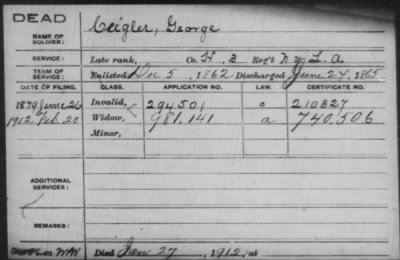 DEAD
NAME OF SOLDIER: Ceigler, George
SERVICE: Late rank, Co. H, 3 Reg't N.Y.L.A.
TERM OF SERVICE: Enlisted Dec 5, 1862 Discharged June 24, 1865
DATE OF FILING. CLASS. APPLICATION NO. LAW. CERTIFICATE NO.
1879 June 26 Invalid, 294501 c 210327
1912 Feb. 20 Widow, 981.141 a 740.506
Minor,
ADDITIONAL SERVICES:
REMARKS:
Died Jan 27, 1912, at